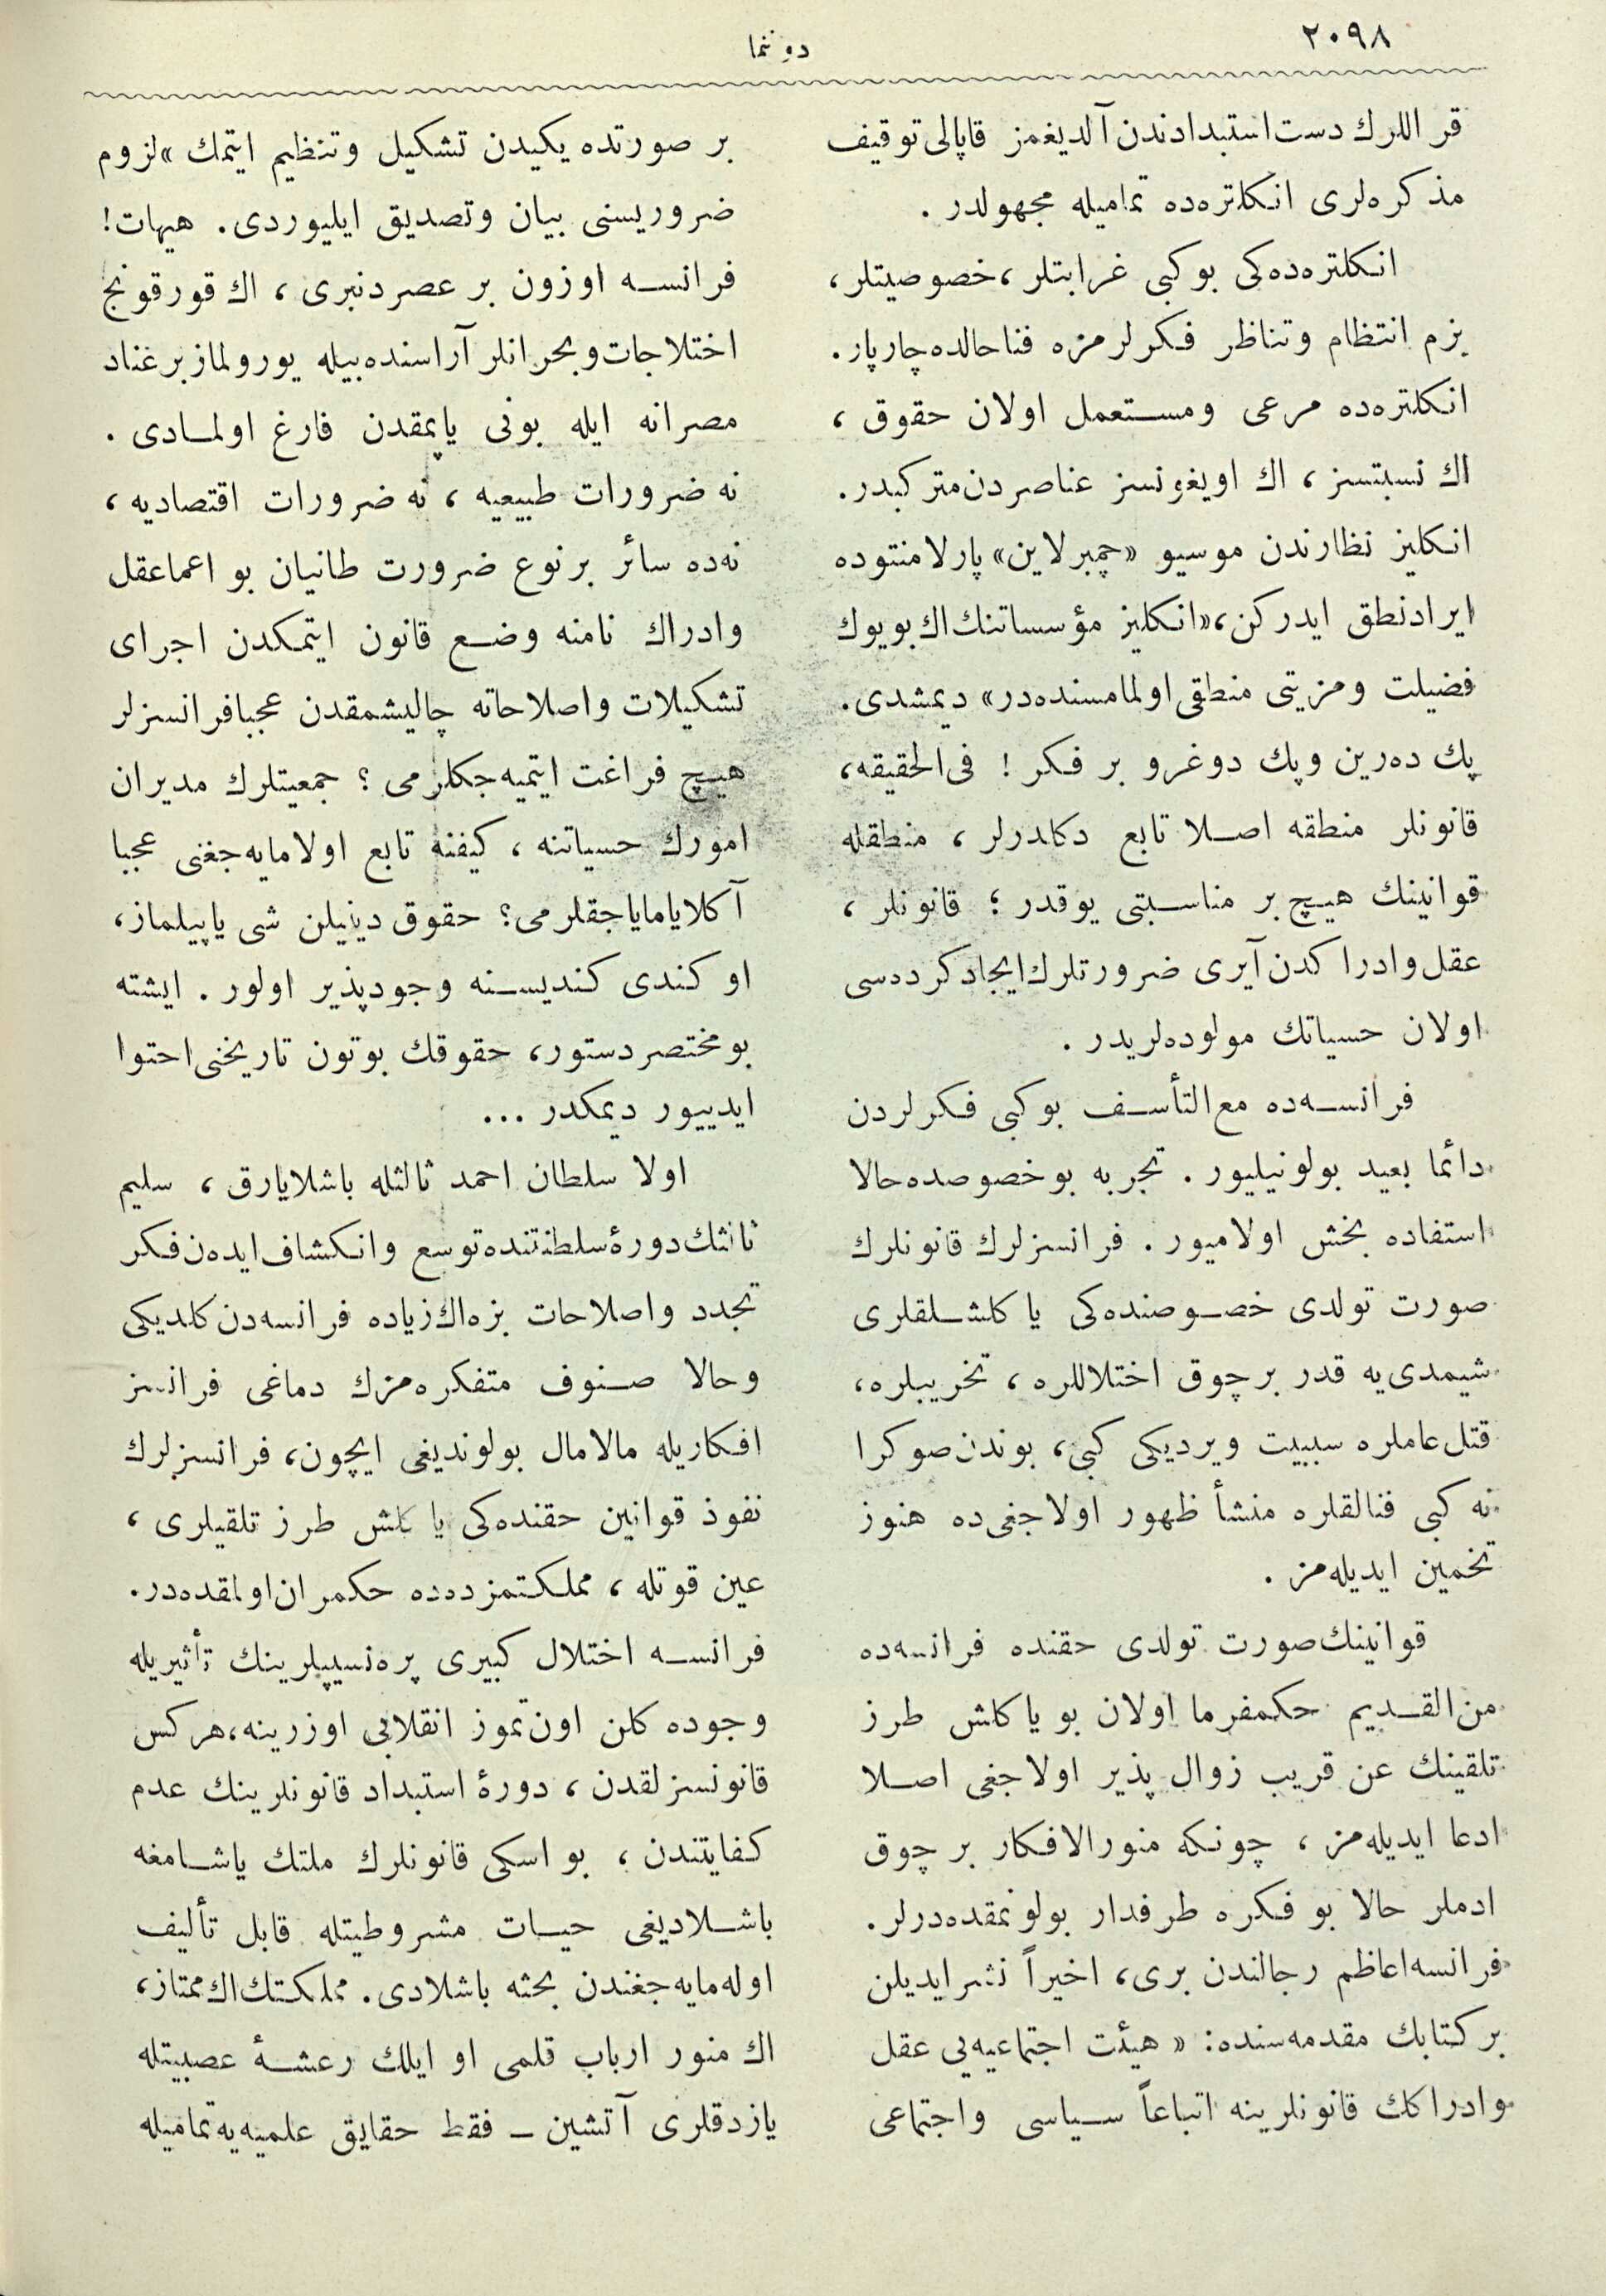 ٢٠٩٨
دوننما
قراللرك دست استبدادندن آلديغمز قاپالى توقيف
مذكره‌لرى انكلتره‌ده تماميله مجهولدر .
انكلتره‌ده‌كى بوكبى غرابتلر ، خصوصيتلر ،
بزم انتظام وتناظر فكرلرمزه فنا حالده چارپار .
انكلتره‌ده مرعى ومستعمل اولان حقوق ،
اك نسبتسز ، اك اويغونسز عناصردن متركبدر .
انكليز نظارندن موسيو «چمبرلاين» پارلامنتوده
ايراد نطق ايدركن ، «انكليز مؤسساتنك اك بويوك
فضيلت ومزيتى منطقى اولمامسنده‌در» ديمشدى .
پك ده‌رين وپك دوغرو بر فكر ! فى‌الحقيقه ،
قانونلر منطقه اصلا تابع دكلدرلر ، منطقله
قوانينك هيچ بر مناسبتى يوقدر ؛ قانونلر ،
عقل وادراكدن آيرى ضرورتلرك ايجاد كرده‌سى
اولان حسياتك مولوده‌لريدر .
فرانسه‌ده مع‌التأسف بوكبى فكرلردن
دائما بعيد بولونيليور . تجربه بو خصوصده حالا
استفاده بخش اولاميور . فرانسزلرك قانونلرك
صورت تولدى خصوصنده‌كى ياكلشلقلرى
شيمدى‌يه قدر بر چوق اختلاللره ، تخريبلره ،
قتل عاملره سببيت ويرديكى كبى ، بوندن صوكرا
نه كبى فنالقلره منشأ ظهور اولاجغى‌ده هنوز
تخمين ايديله‌مز .
قوانينك صورت تولدى حقنده فرانسه‌ده
من‌القديم حكمفرما اولان بو ياكلش طرز
تلقينك عن قريب زوال پذير اولاجغى اصلا
ادعا ايديله‌مز ، چونكه منورالافكار بر چوق
ادملر حالا بو فكره طرفدار بولونمقده‌درلر .
فرانسه اعاظم رجالندن برى ، اخيراً نشر ايديلن
بر كتابك مقدمه‌سنده : « هيئت اجتماعيه‌يى عقل
وادراكك قانونلرينه اتباعاً سياسى واجتماعى
بر صورتده يكيدن تشكيل وتنظيم ايتمك » لزوم
ضروريسنى بيان وتصديق ايليوردى . هيهات !
فرانسه اوزون بر عصردنبرى ، اك قورقونج
اختلاجات وبحرانلر آراسنده بيله يورولماز بر عناد
مصرانه ايله بونى ياپمقدن فارغ اولمادى .
نه ضرورات طبيعيه ، نه ضرورات اقتصاديه ،
نه‌ده سائر بر نوع ضرورت طانيان بو اعما عقل
وادراك نامنه وضع قانون ايتمكدن اجراى
تشكيلات واصلاحاته چاليشمقدن عجبا فرانسزلر
هيچ فراغت ايتميه‌جكلر مى ؟ جمعيتلرك مديران
امورك حسياتنه ، كيفنه تابع اولامايه‌جغنى عجبا
آكلايامايا جقلر مى ؟ حقوق دينيلن شى ياپيلماز ،
او كندى كنديسنه وجودپذير اولور . ايشته
بو مختصر دستور ، حقوقك بوتون تاريخنى احتوا
ايدييور ديمكدر ...
اولا سلطان احمد ثالثله باشلايارق ، سليم
ثالثك دورهٔ سلطنتنده توسع وانكشاف ايده‌ن فكر
تجدد واصلاحات بزه اك زياده فرانسه‌دن كلديكى
وحالا صنوف متفكره‌مزك دماغى فرانسز
افكاريله مالامال بولونديغى ايچون ، فرانسزلرك
نفوذ قوانين حقنده‌كى ياكلش طرز تلقيلرى ،
عين قوتله ، مملكتمزده‌ده حكمران اولمقده‌در .
فرانسه اختلال كبيرى پره‌نسيپلرينك تأثيريله
وجوده كلن اون تموز انقلابى اوزرينه ، هركس
قانونسزلقدن ، دورهٔ استبداد قانونلرينك عدم
كفايتندن ، بو اسكى قانونلرك ملتك ياشامغه
باشلاديغى حيات مشروطيتله قابل تأليف
اوله‌مايه‌جغندن بحثه باشلادى . مملكتك اك ممتاز ،
اك منور ارباب قلمى او ايلك رعشهٔ عصبيتله
يازدقلرى آتشين ـ فقط حقايق علميه‌يه تماميله